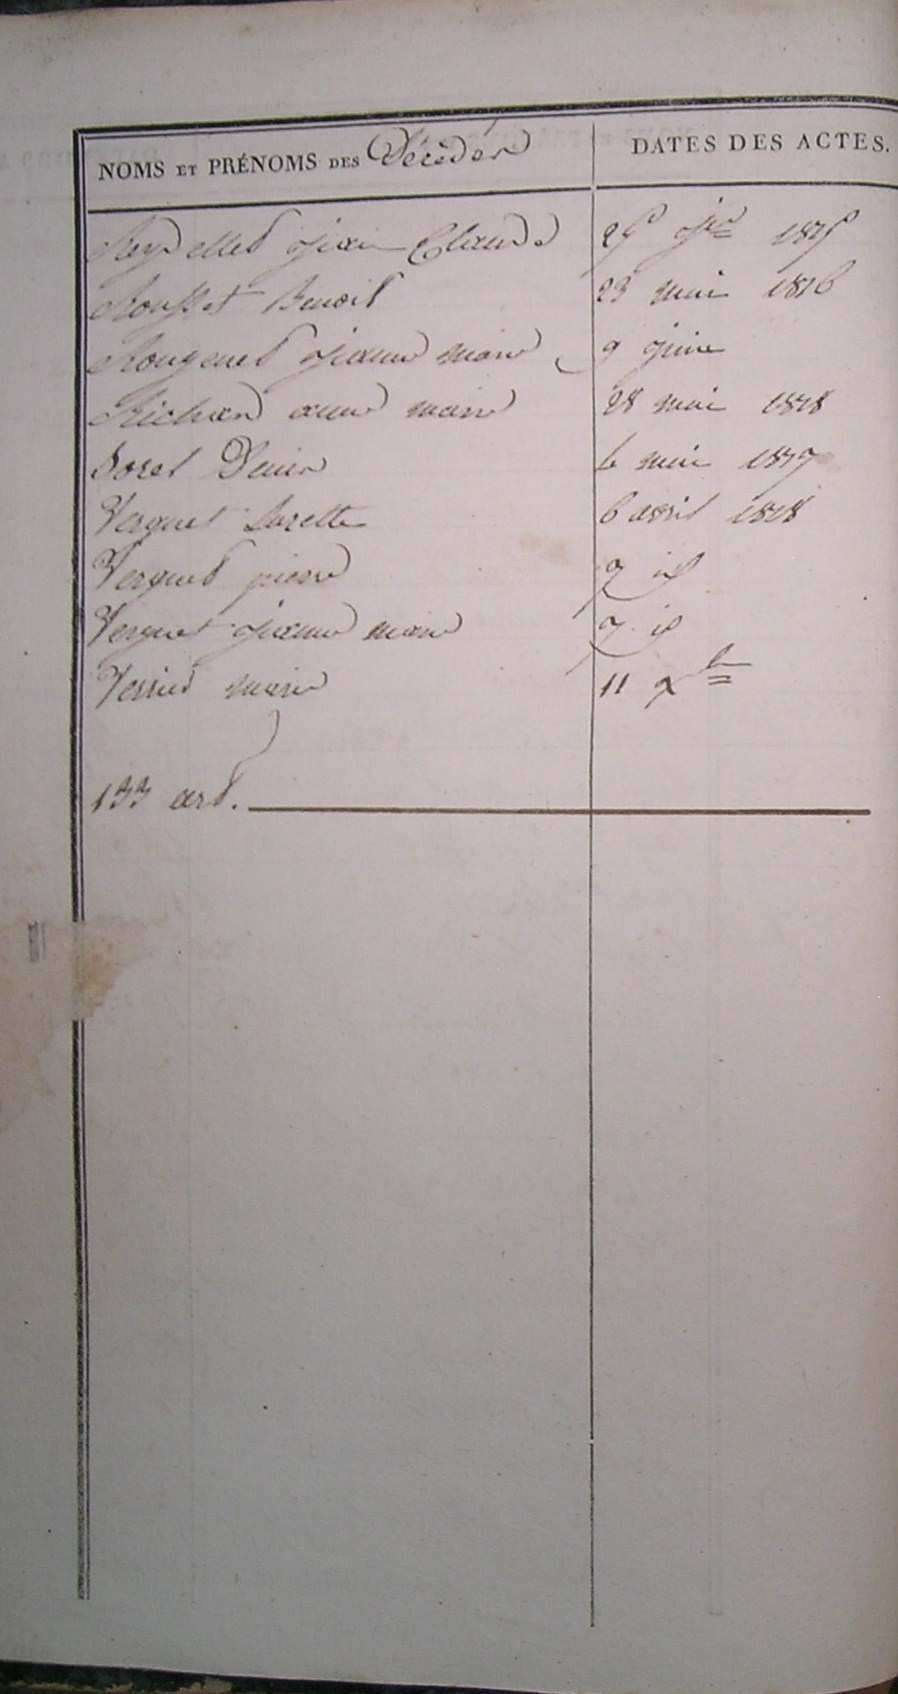 NOMS ET PRÉNOMS DES Décédés DATES DES ACTES.
Reydellet Jean Claude 25 Jer 1815
Rousset Benoit 23 mai 1816
Rougemet Jeanne marie 9 juin
Richard anne marie 28 mai 1818
Sorel Denis 4 mai 1817
Verguet Lucette 6 avril 1818
Verguet pierre 7 id
Verguet Jeanne marie 7 id
Verrier marie 11 xbre
133 art.